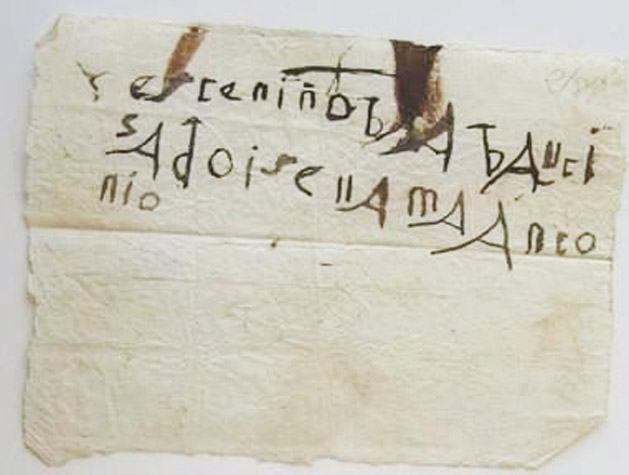 este niño bA bAuti
sAdo i se llAmA Anto
nio